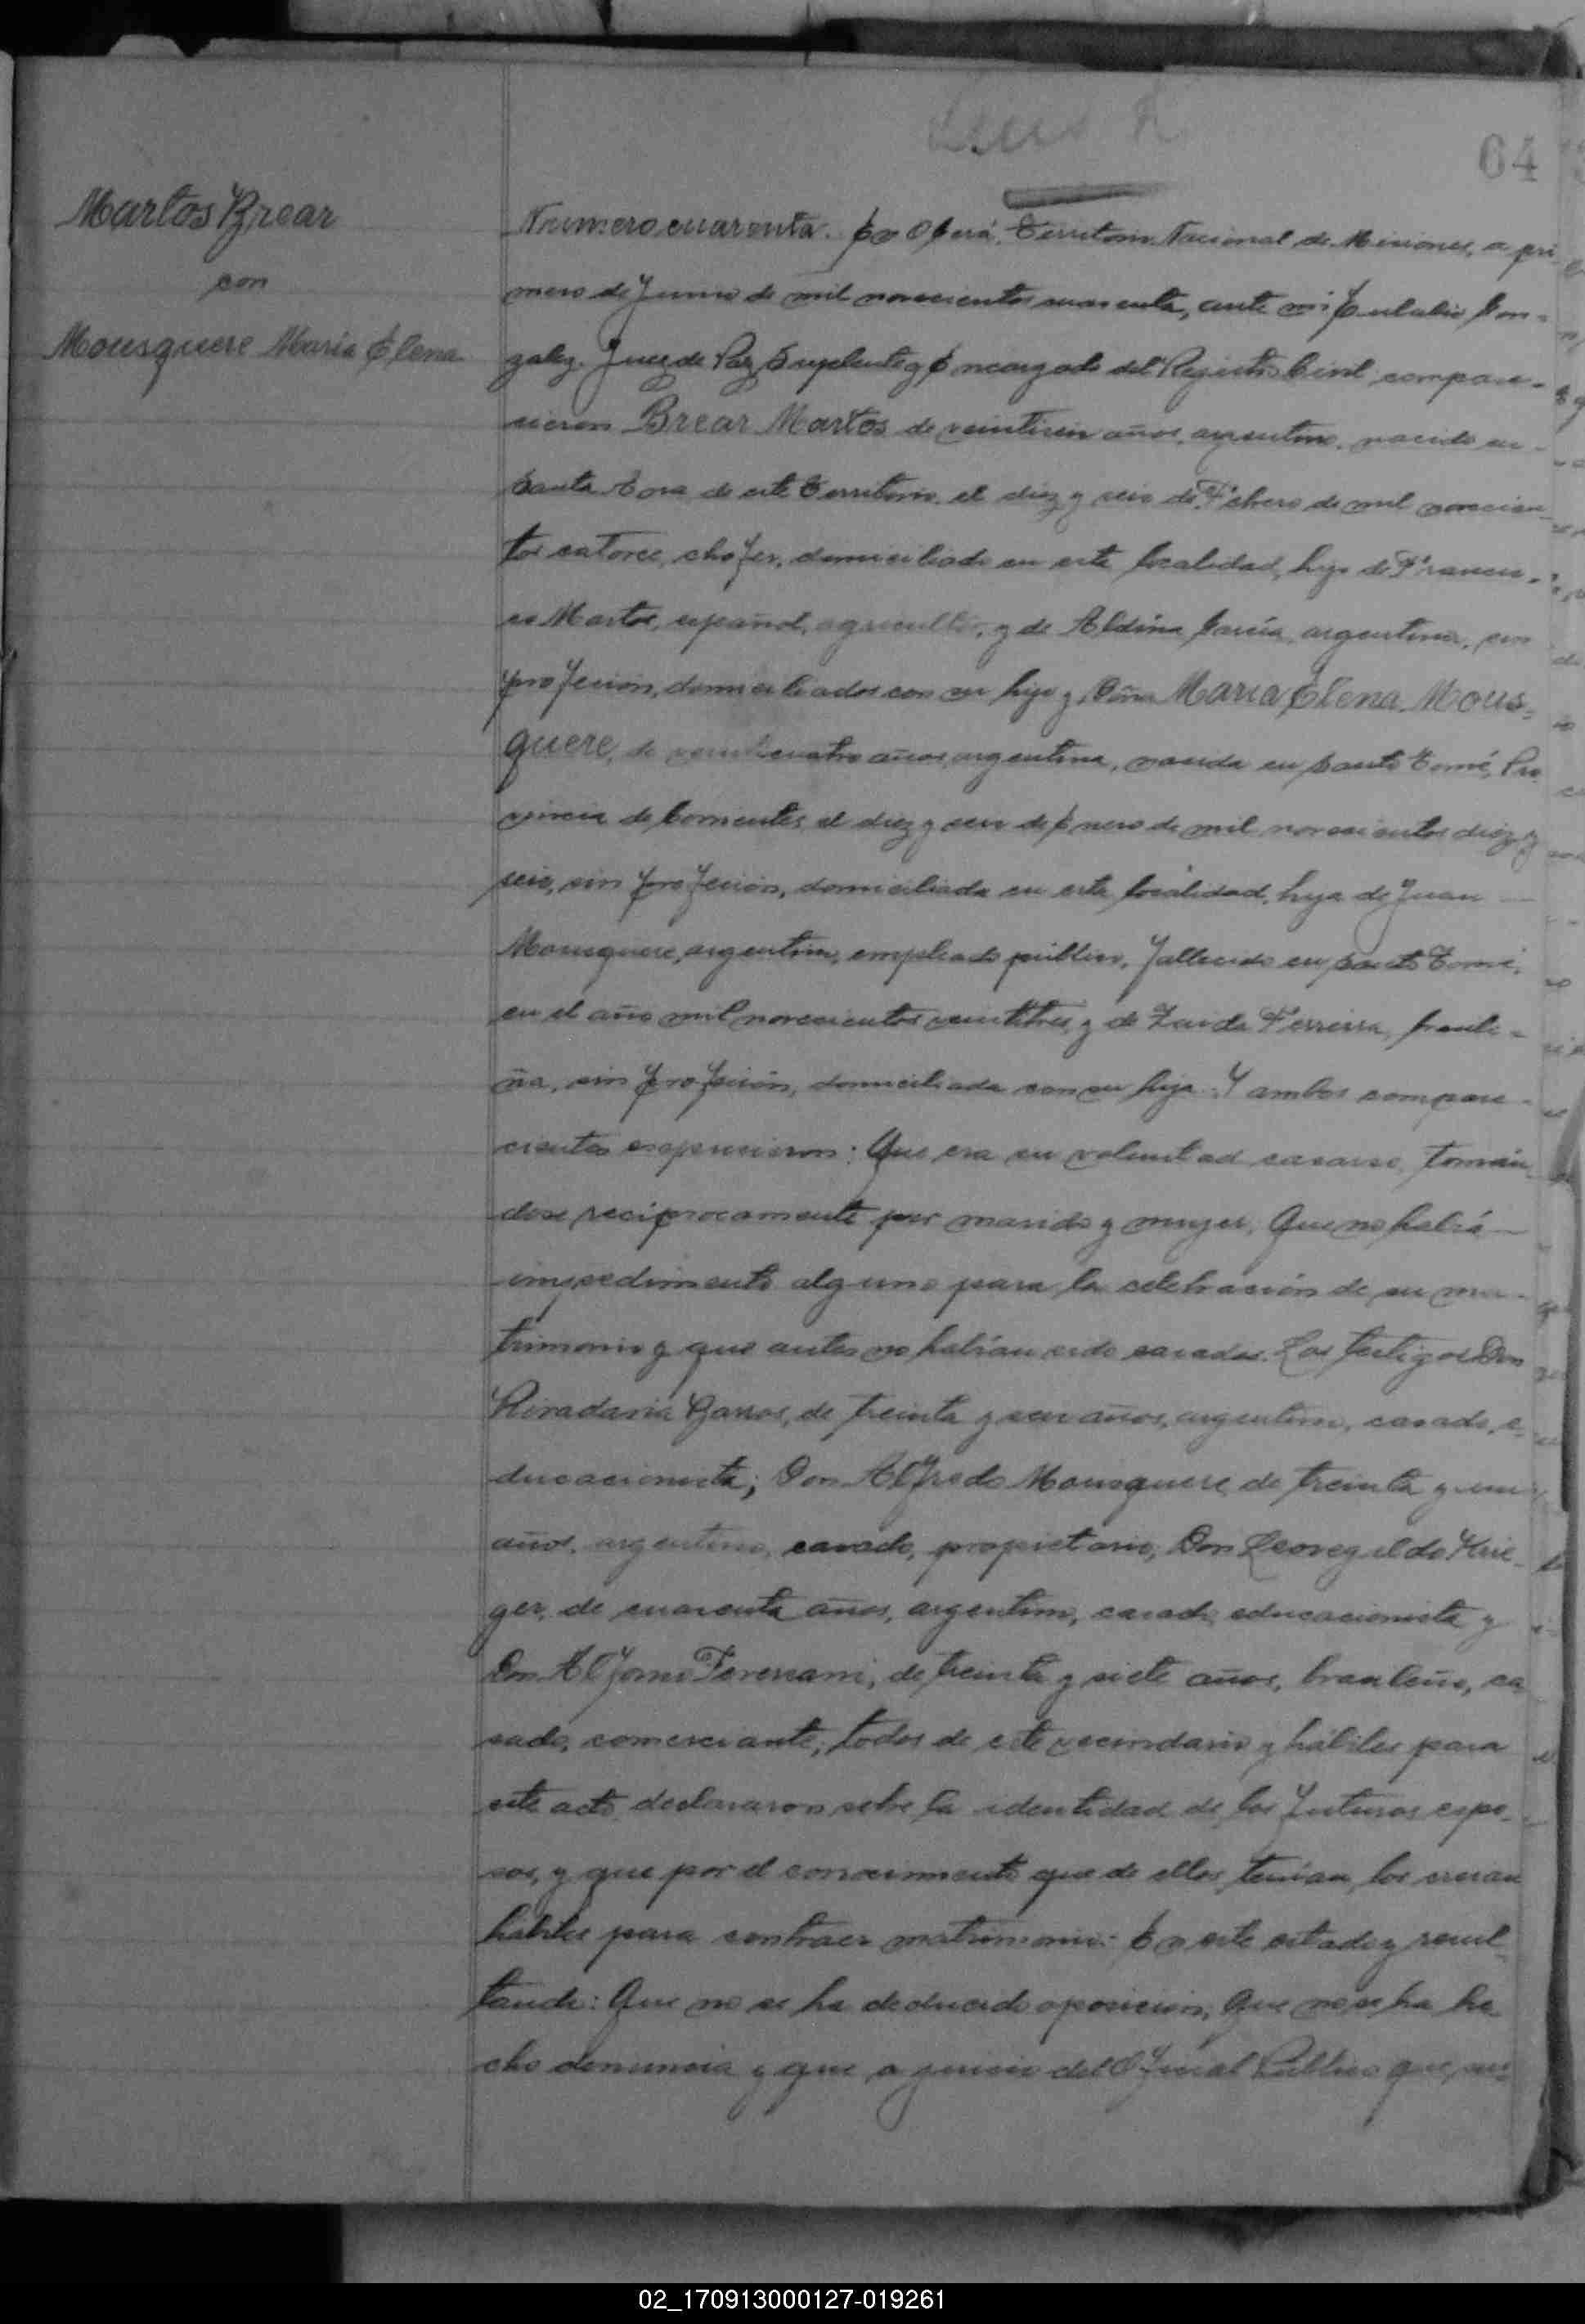 64
Martos Brear
con
Mousquere María Elena
Número cuarenta. En Oberá, Territorio Nacional de Misiones, a pri
mero de Junio de mil novecientos cuarenta, ante mi Eulalio Gon-
zalez. Juez de Paz Suplente y Encargado del Registro Civil compare-
cieron Brear Martos de veintiseis años, argentino, nacido en
Santa Ana de este Territorio, el diez y seis de Febrero de mil novecien
tos catorce, chofer, domiciliado en esta localidad, hijo de Francis-
co Martos, español, agricultor, y de Aldina García, argentina, sin
profesion, domiciliados con su hijo y Doña María Elena Mous-
quere, de veinticuatro años, argentina, nacida en Santo Tomé, Pro
vincia de Corrientes, el diez y seis de Enero de mil novecientos diez y
seis, sin profesión, domiciliada en esta localidad, hija de Juan
Mousquere, argentino, empleado público, fallecido en Santo Tomé,
en el año mil novecientos veintitres, y de Zaida Ferreira, brasile-
ña, sin profesión, domiciliada con su hija. Y ambos compare-
cientes expresaron: Que era su voluntad casarse, tomán
dose recíprocamente por marido y mujer, Que no había
impedimento alguno para la celebración de su ma-
trimonio y que antes no habían sido casados. Los testigos Don
Rivadavia Barros, de treinta y seis años, argentino, casado, e-
ducacionista; Don Alfredo Mousquere, de treinta y un
años, argentino, casado, propietario; Don Leovegildo Krie-
ger, de cuarenta años, argentino, casado, educacionista y
Don de treinta y siete años, brasileño, ca
sado, comerciante, todos de este vecindario y hábiles para
este acto, declararon sobre la identidad de los futuros espo-
sos, y que por el conocimiento que de ellos tenían, los creían
hábiles para contraer matrimonio. En este estado y resul-
tando: Que no se ha deducido oposición, Que no se ha he-
cho denuncia y que, a juicio del Oficial Público que, sus-
02_170913000127-019261